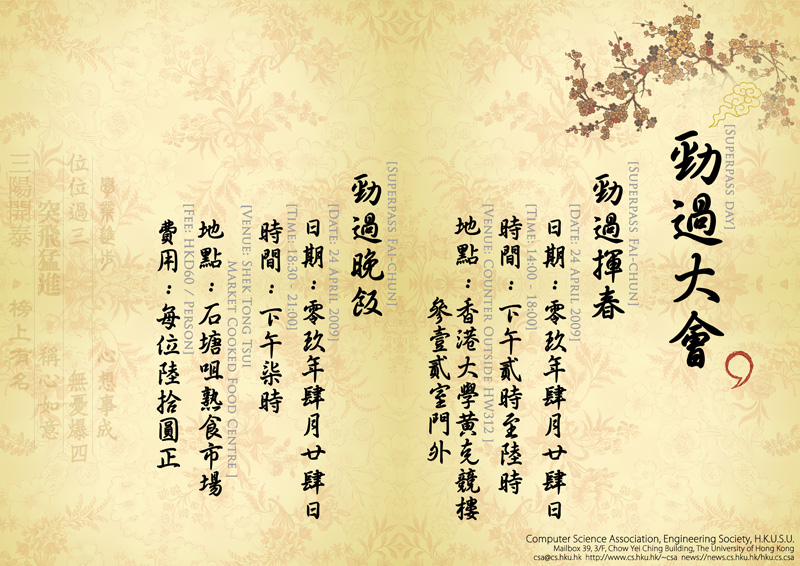 勁過大會
[Superpass day]
勁過揮春
[Superpass Fai-chun]
日期：零玖年肆月廿肆日
[Date: 24 April 2009]
時間：下午貳時至陸時
[Time: 14:00 - 18:00]
地點：香港大學黃克競樓
參壹貳室門外
[Venue: Counter Outside HW312 ]
勁過晚飯
[Superpass Fai-chun]
日期：零玖年肆月廿肆日
[Date: 24 April 2009]
時間：下午柒時
[Time: 18:30 - 21:00]
地點：石塘咀熟食市場
[Venue: Shek Tong Tsui
Market Cooked Food Centre ]
費用：每位陸拾圓正
[Fee: HKD60 / Person]
學業進步
心想事成
位位過三
無憂爆四
突飛猛進
稱心如意
三陽開泰
榜上有名
Computer Science Association, Engineering Society, H.K.U.S.U.
Mailbox 39, 3/F, Chow Yei Ching Building, The University of Hong Kong
csa@cs.hku.hk http://www.cs.hku.hk/~csa news://news.cs.hku.hk/hku.cs.csa